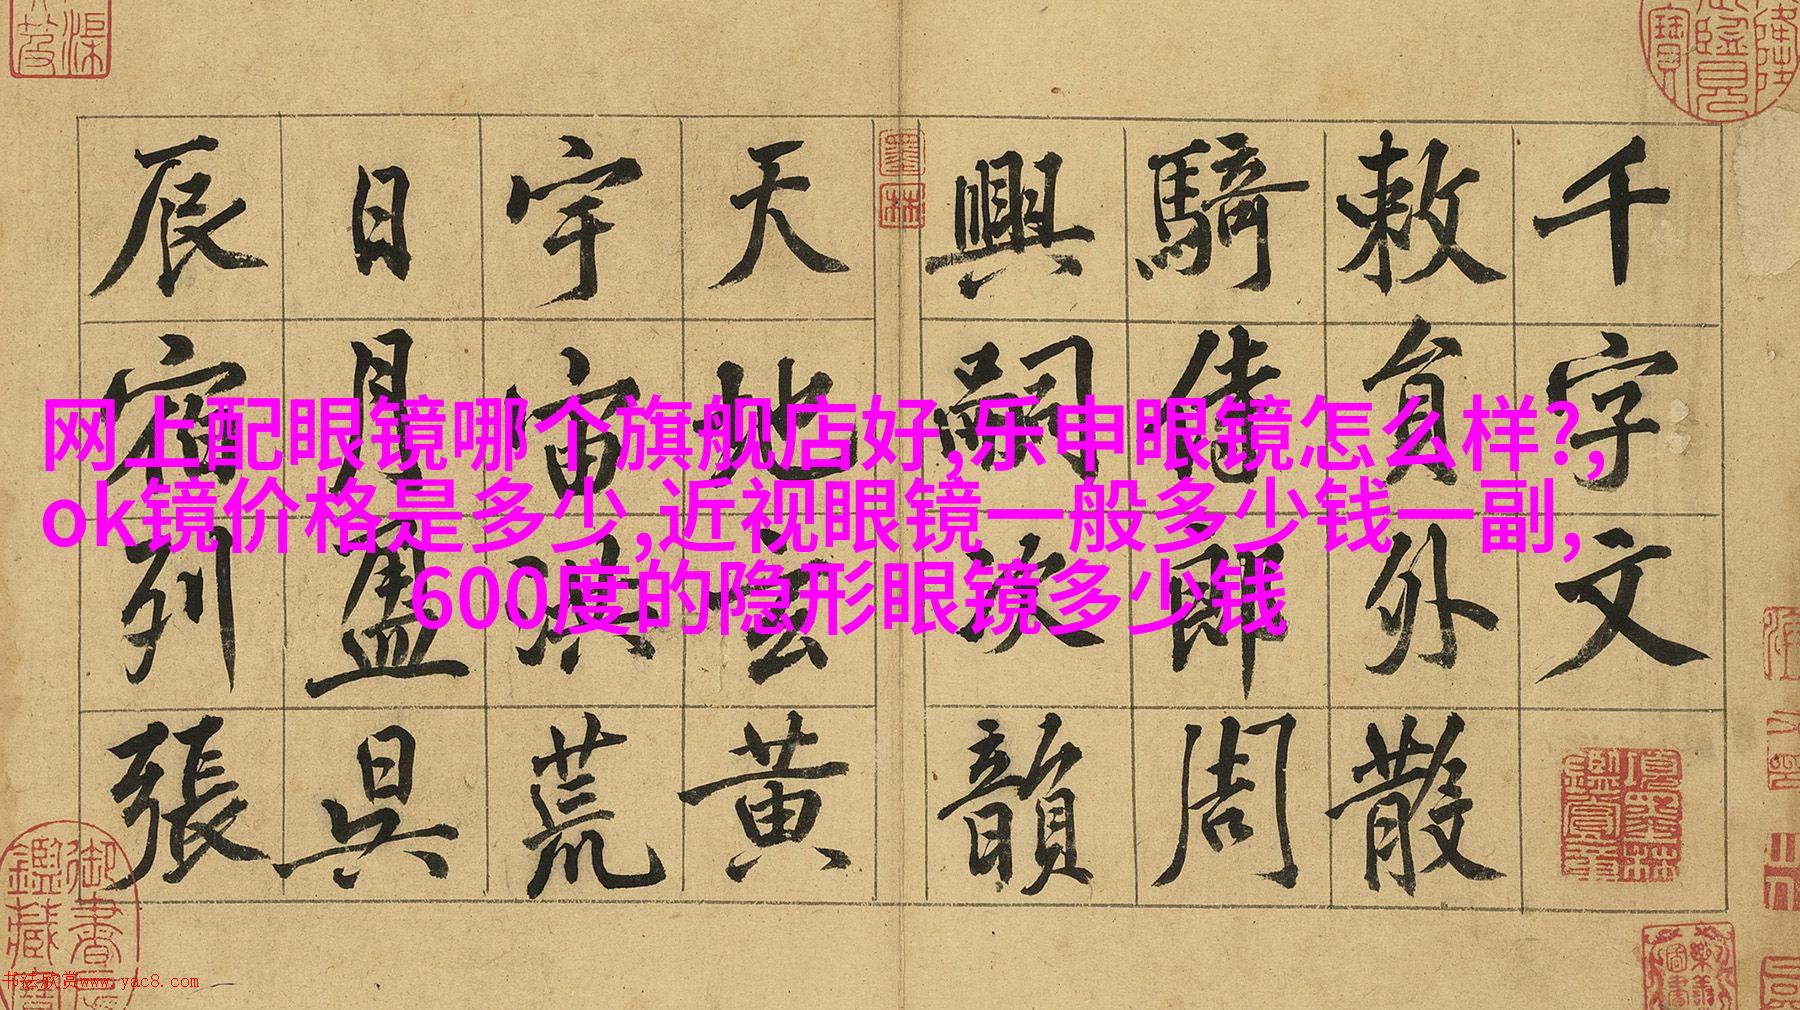 网上配眼镜哪个旗舰店好,乐申眼镜怎么样?,
ok镜价格是多少,近视眼镜一般多少钱一副,
600度的隐形眼镜多少钱
千字文
敕員外散
騎侍郎周
興嗣次韻
天地玄黄
宇宙洪荒
日月盈昃
辰宿列張
墨林
項墨林鑑賞章
书法欣赏www.yac8.com